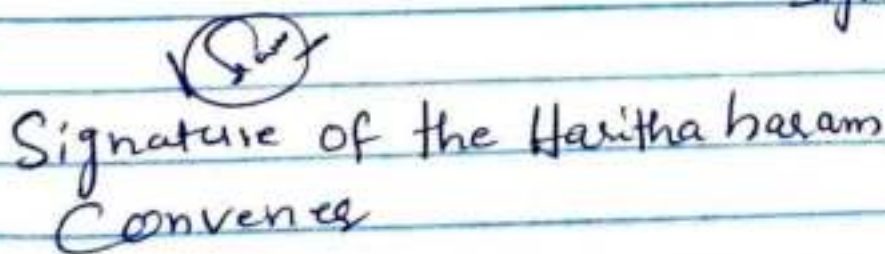 Signature of the Haritha haram
Convener